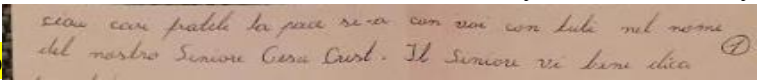 ciau cari frateli la pace si-a con voi con tuti nel nome
del nostro Seniore Gesu Crist. Il Seniore vi bene dica
①